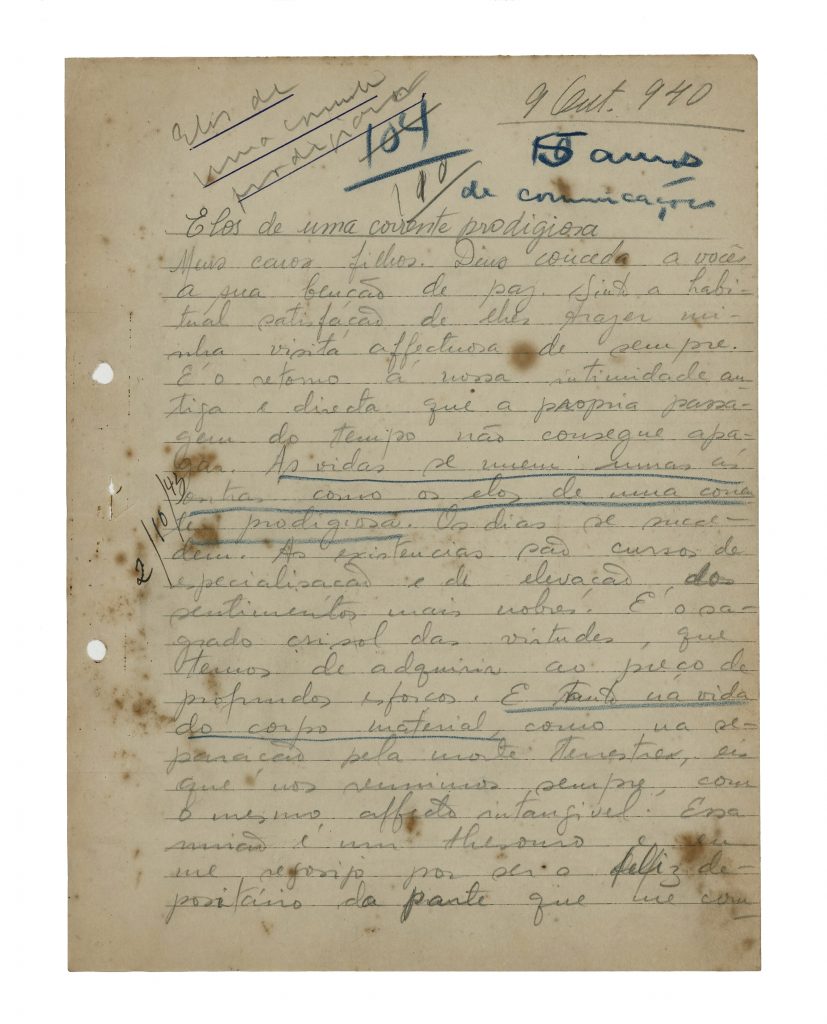 Elos de
uma corrente
prodigiosa
9 Out. 940
104
110
5 annos
de comunicações
Elos de uma corrente prodigiosa
Meus caros filhos. Deus conceda a vocês
a sua benção de paz. Sinto a habi-
tual satisfação de lhes trazer mi-
nha visita affectuosa de sempre.
E' o retorno á nossa intimidade an
tiga e directa que a propria passa-
gem do tempo não consegue apa-
gar. As vidas se unem umas ás
outras como os elos de uma corren
te prodigiosa. Os dias se succe-
dem. As existencias são cursos de
especialisação e de elevação dos
sentimentos mais nobres. E' o sa-
grado crisol das virtudes, que
temos de adquirir ao preço de
profundos esforços. E tanto na vida
do corpo material, como na se-
paração pela morte terrestre, eis
que nos reunimos sempre, com
o mesmo affecto intangivel. Essa
união é um thesouro e eu
me regosijo por ser o feliz de-
positário da parte que me com
2/10/45